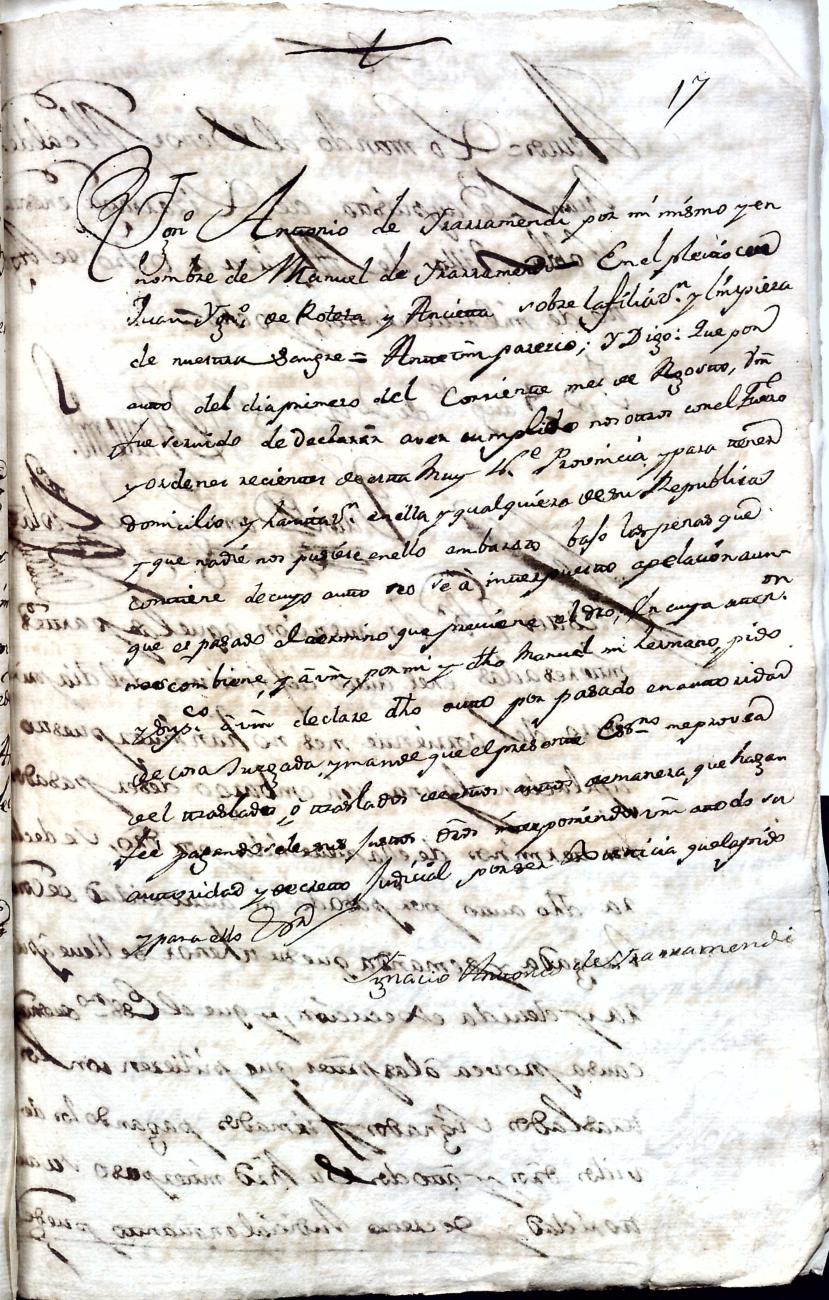 17
Ygn.º Antonio de Yrarramendi por mi mismo y en
nombre de Manuel de Yrarramendi En el pleito con
Juan Ygn.º de Roteta y Ancieta sobre la filiaz.n y limpieza
de nuestra Sangre = Ante Vm parezco, y Digo: Que por
auto del dia primero del Corriente mes de Agosto, Vm
fue servido de declarar aver cumplido nosotros con el Fuero
y ordenes recientes de esta Muy N.e Provincia y para tener
domicilio y havitaz.n en ella y qualquiera de su Republicas
y que nadie nos pusiese en ello embarazo bajo las penas que
contiene de cuyo auto no se à interpuesto apelacion aun-
que es pasado el termino que previene el dro, En cuya aten.on
nos combiene, y à Vm por mi y dho Manuel mi hermano, pido
y sup.co à Vm declare dho auto por pasado en autoridad
de cosa Juzgada, y mande que el presente Ess.no me provea
del traslado, ò traslados de estos autos de manera que hagan
fee pagandosele sus justos dros interponiendo Vm atodo su
autoridad y decreto Judicial por ser de Justicia que la pido
y para ello &.
Ygnacio Antonio de Yrarramendi